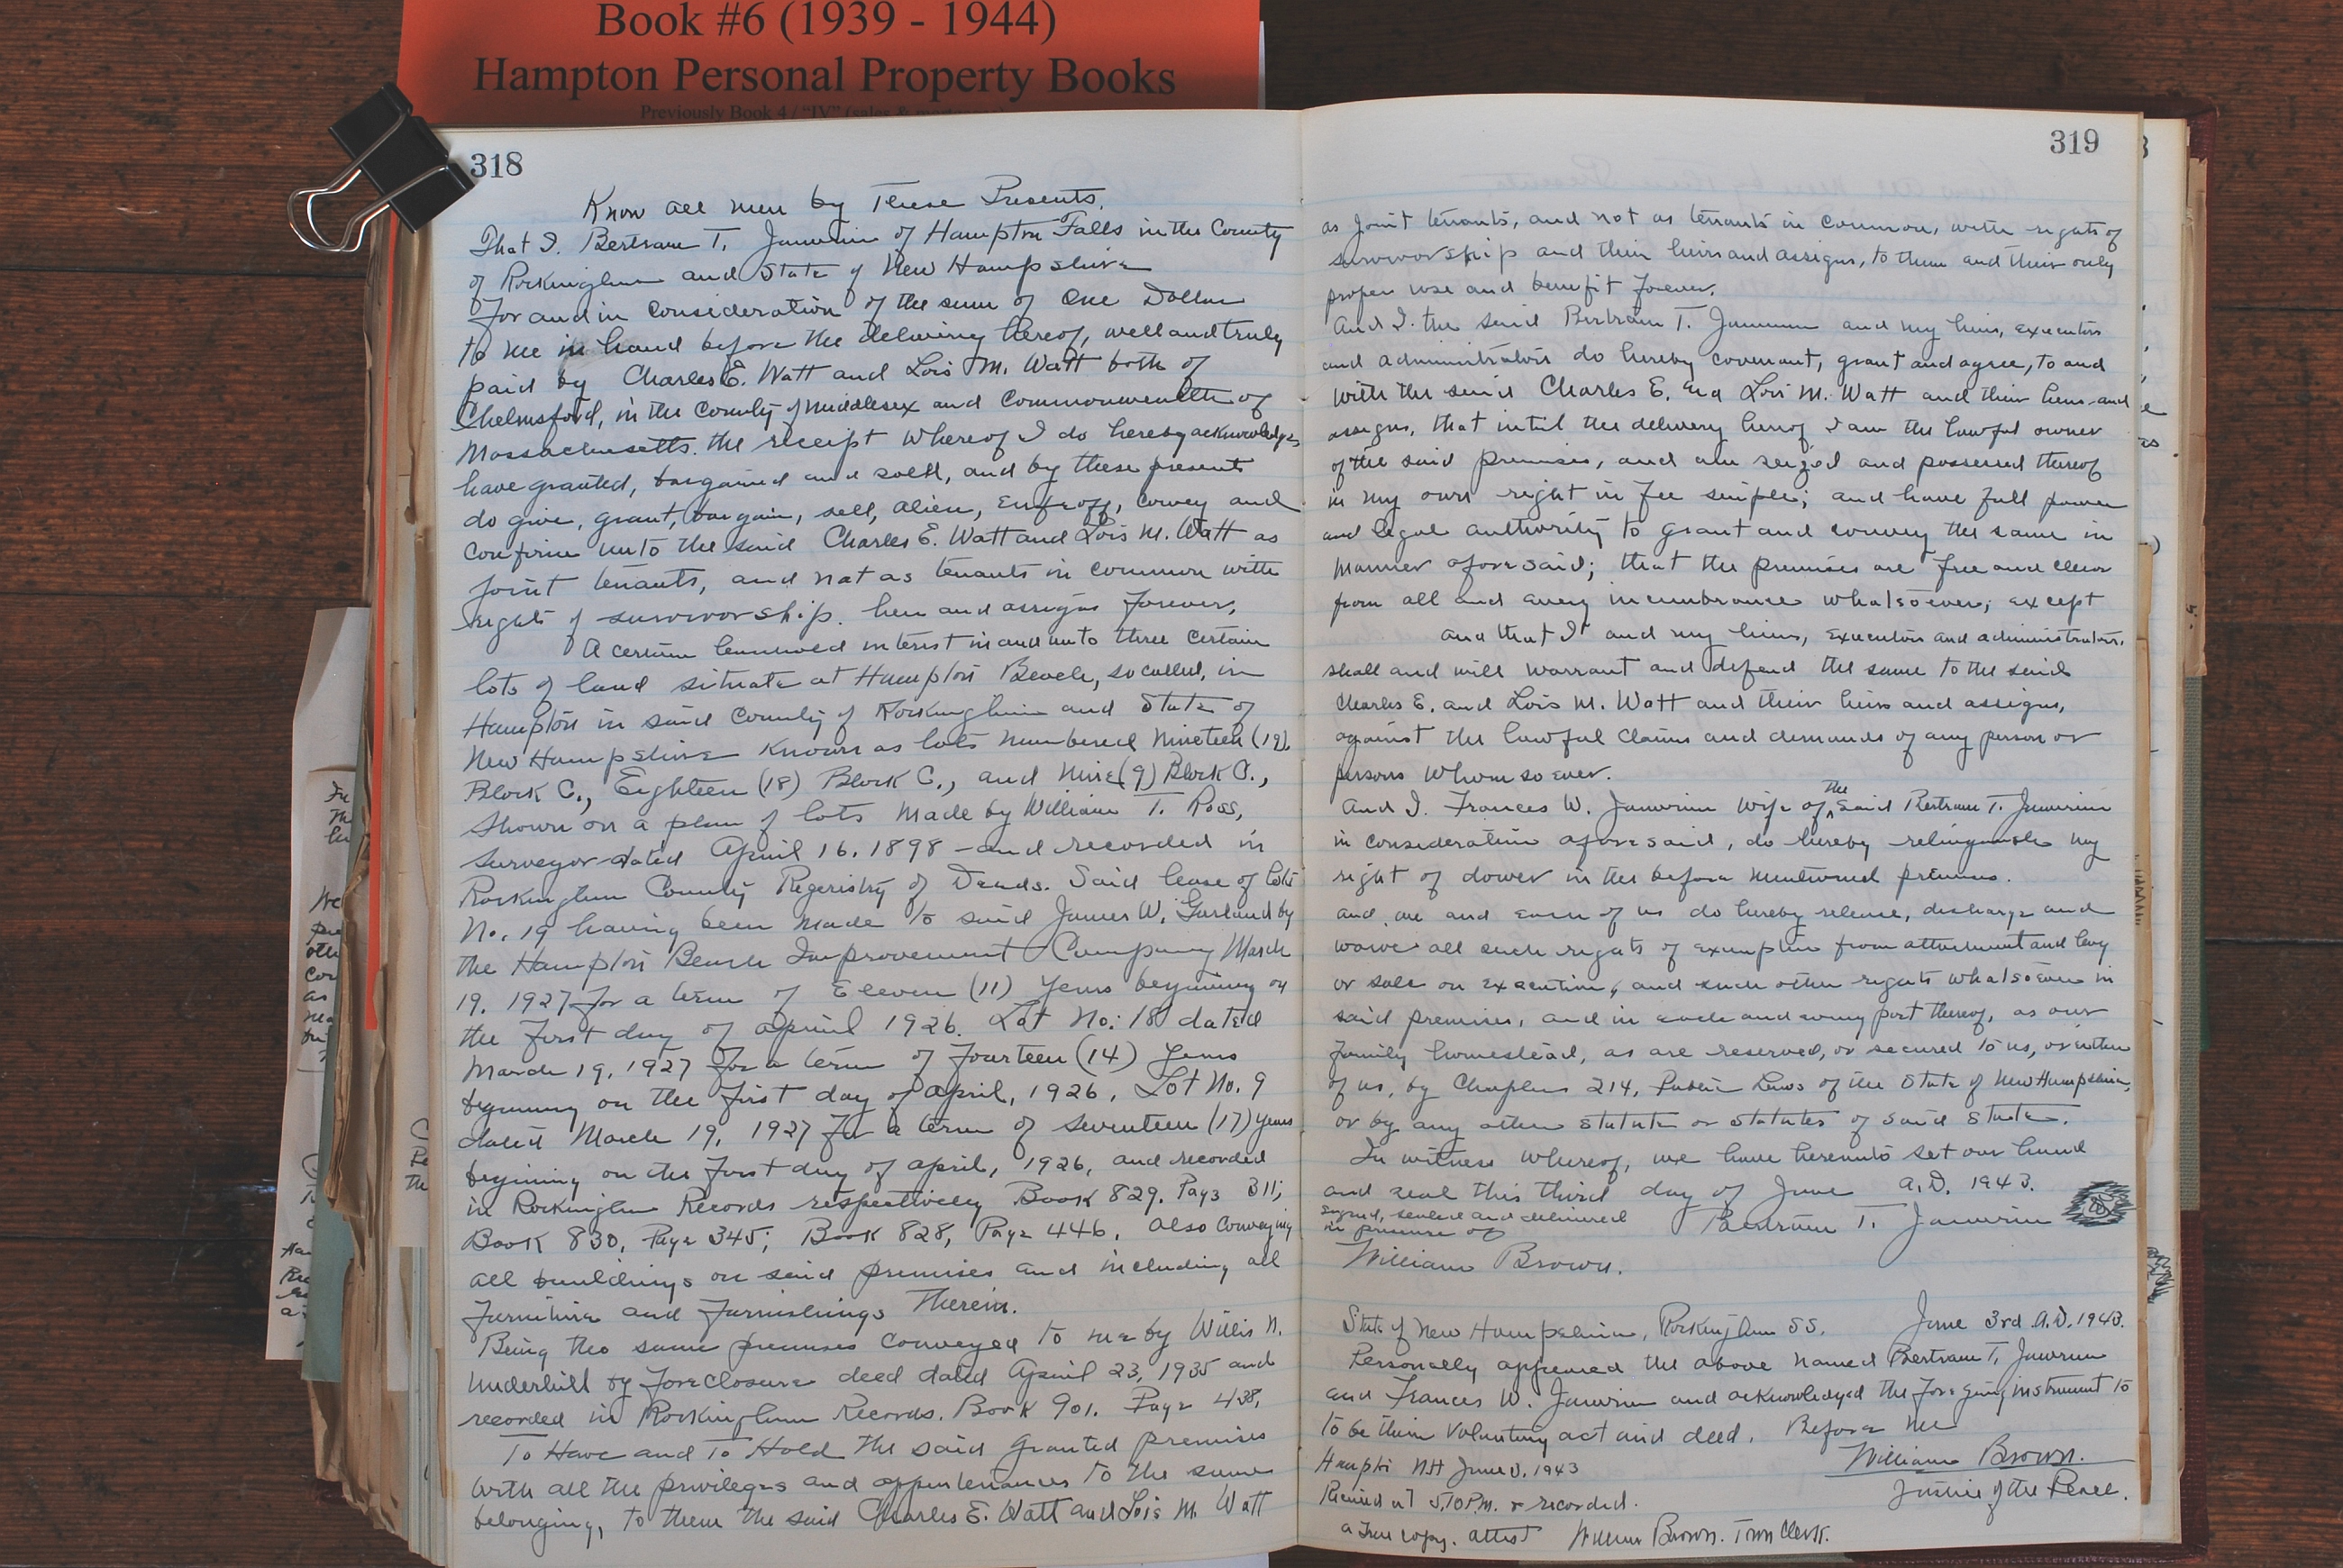 Book #6 (1939 - 1944)
Hampton Personal Property Books
Previously Book 4 / "IV" (sales & mortgages)
318
Know all men by These Presents,
That I, Bertram T. Janvrin of Hampton Falls in the County
of Rockingham and State of New Hampshire
For and in consideration of the sum of One Dollar
to me in hand before the delivery hereof, well and truly
paid by Charles E. Watt and Lois M. Watt both of
Chelmsford, in the County of Middlesex and Commonwealth of
Massachusetts. the receipt whereof I do hereby acknowledge,
have granted, bargained and sold, and by these presents
do give, grant, bargain, sell, alien, enfeoff, convey and
confirm unto the said Charles E. Watt and Lois M. Watt as
joint tenants, and not as tenants in common with
rights of survivorship. heir and assigns forever,
A certain leasehold interest in and unto three certain
lots of land situate at Hampton Beach, so called, in
Hampton in said County of Rockingham and State of
New Hampshire known as lots numbered Nineteen (19),
Block C., Eighteen (18) Block C., and Nine (9) Block C.,
shown on a plan of lots made by William T. Ross,
surveyor dated April 16, 1898 and recorded in
Rockingham County Regeristry of Deeds. Said lease of lots
No. 19 having been made to said James W. Garland by
the Hampton Beach Improvement Company March
19, 1927 for a term of Eleven (11) years beginning on
the first day of April 1926. Lot No. 18 dated
March 19, 1927 for a term of Fourteen (14) years
beginning on the first day of April, 1926, Lot No. 9
dated March 19, 1927 for a term of seventeen (17) years
beginning on the first day of April, 1926, and recorded
in Rockingham Records respectively Book 829, Page 311;
Book 830, Page 345; Book 828, Page 446, also conveying
all buildings on said premises and including all
furniture and furnishings therein.
Being the same premises conveyed to me by Willis N.
Underhill by foreclosure deed dated April 23, 1935 and
recorded in Rockingham Records, Book 901, Page 428.
To Have and To Hold the said granted premises
with all the privileges and appurtenances to the same
belonging, to them the said Charles E. Watt and Lois M. Watt
319
as joint tenants, and not as tenants in common, with rights of
survivorship and their heirs and assigns, to them and their only
proper use and benefit forever.
And I the said Bertram T. Janvrin and my heirs, executors
and administrators do hereby covenant, grant and agree, to and
with the said Charles E. and Lois M. Watt and their heirs and
assigns, that intil the delivery hereof I am the lawful owner
of the said premises, and am seized and possessed thereof
in my own right in fee simple; and have full power
and legal authority to grant and convey the same in
manner aforesaid; that the premises are free and clear
from all and every incumbrance whatsoever; except
and that I and my heirs, executors and administrators,
shall and will warrant and defend the same to the said
Charles E. and Lois M. Watt and their heirs and assigns,
against the lawful claims and demands of any person or
persons whomsoever.
And I, Frances W. Janvrin wife of the said Bertram T. Janvrin
in consideration aforesaid, do hereby relinquish my
right of dower in the before mentioned premises.
and we and each of us do hereby release, discharge and
waive all such rights of exemption from attachment and levy
or sale on execution, and such other rights whatsoever in
said premises, and in each and every part thereof, as our
family homestead, as are reserved, or secured to us, or either
of us, by Chapter 214, Public Laws of the State of New Hampshire,
or by any other statute or statutes of said State.
In witness whereof, we have hereunto set our hand
and seal this third day of June A.D. 1943.
Signed, sealed and delivered
in presence of
Bertram T. Janvrin
William Brown.
State of New Hampshire, Rockingham SS. June 3rd A.D. 1943.
Personally appeared the above named Bertram T. Janvrin
and Frances W. Janvrin and acknowledged the foregoing instrument to
to be their voluntary act and deed. Before me
William Brown.
Justice of the Peace.
Hampton NH June 3, 1943
Received at 5,10 P.M. & recorded.
a true copy. attest William Brown. Town Clerk.